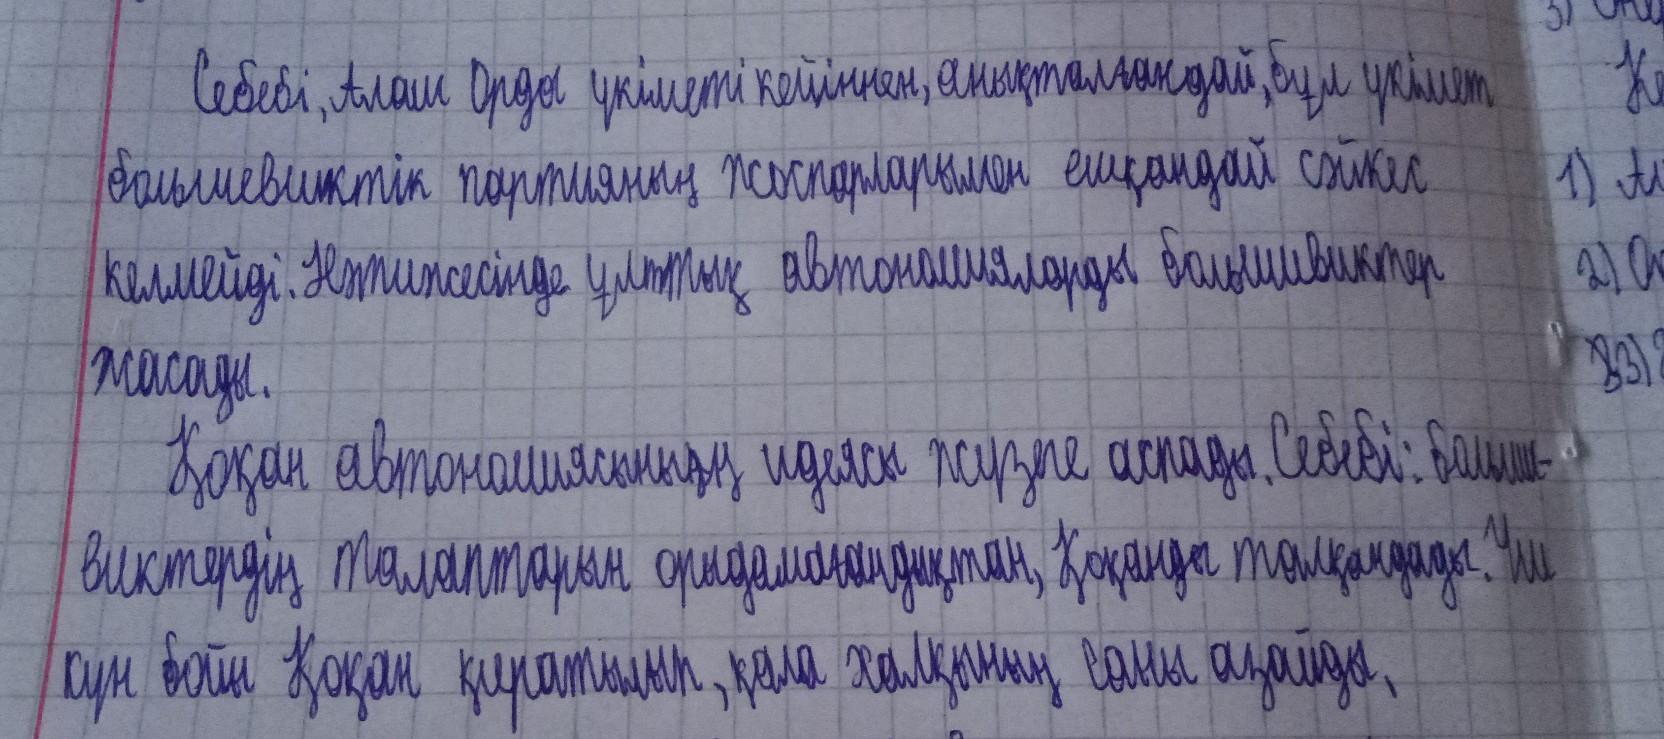 Себебі, Алаш Орда үкіметі кейіннен, анықталғандай, бұл үкімет
большевиктік партияның жоспарларымен ешқандай сәйкес
келмейді. Нәтижесінде ұлттық автономияларды большивиктер
жасады.
Қоқан автономиясының идеясы жүзге аспады. Себебі: больши-
виктердің талаптарын орыдамағандықтан, Қоқанды талқандады. Үш
күн бойы Қоқан қиратылып, қала халқының саны азайды,
3)
Ке
1) Ал
2)
3)